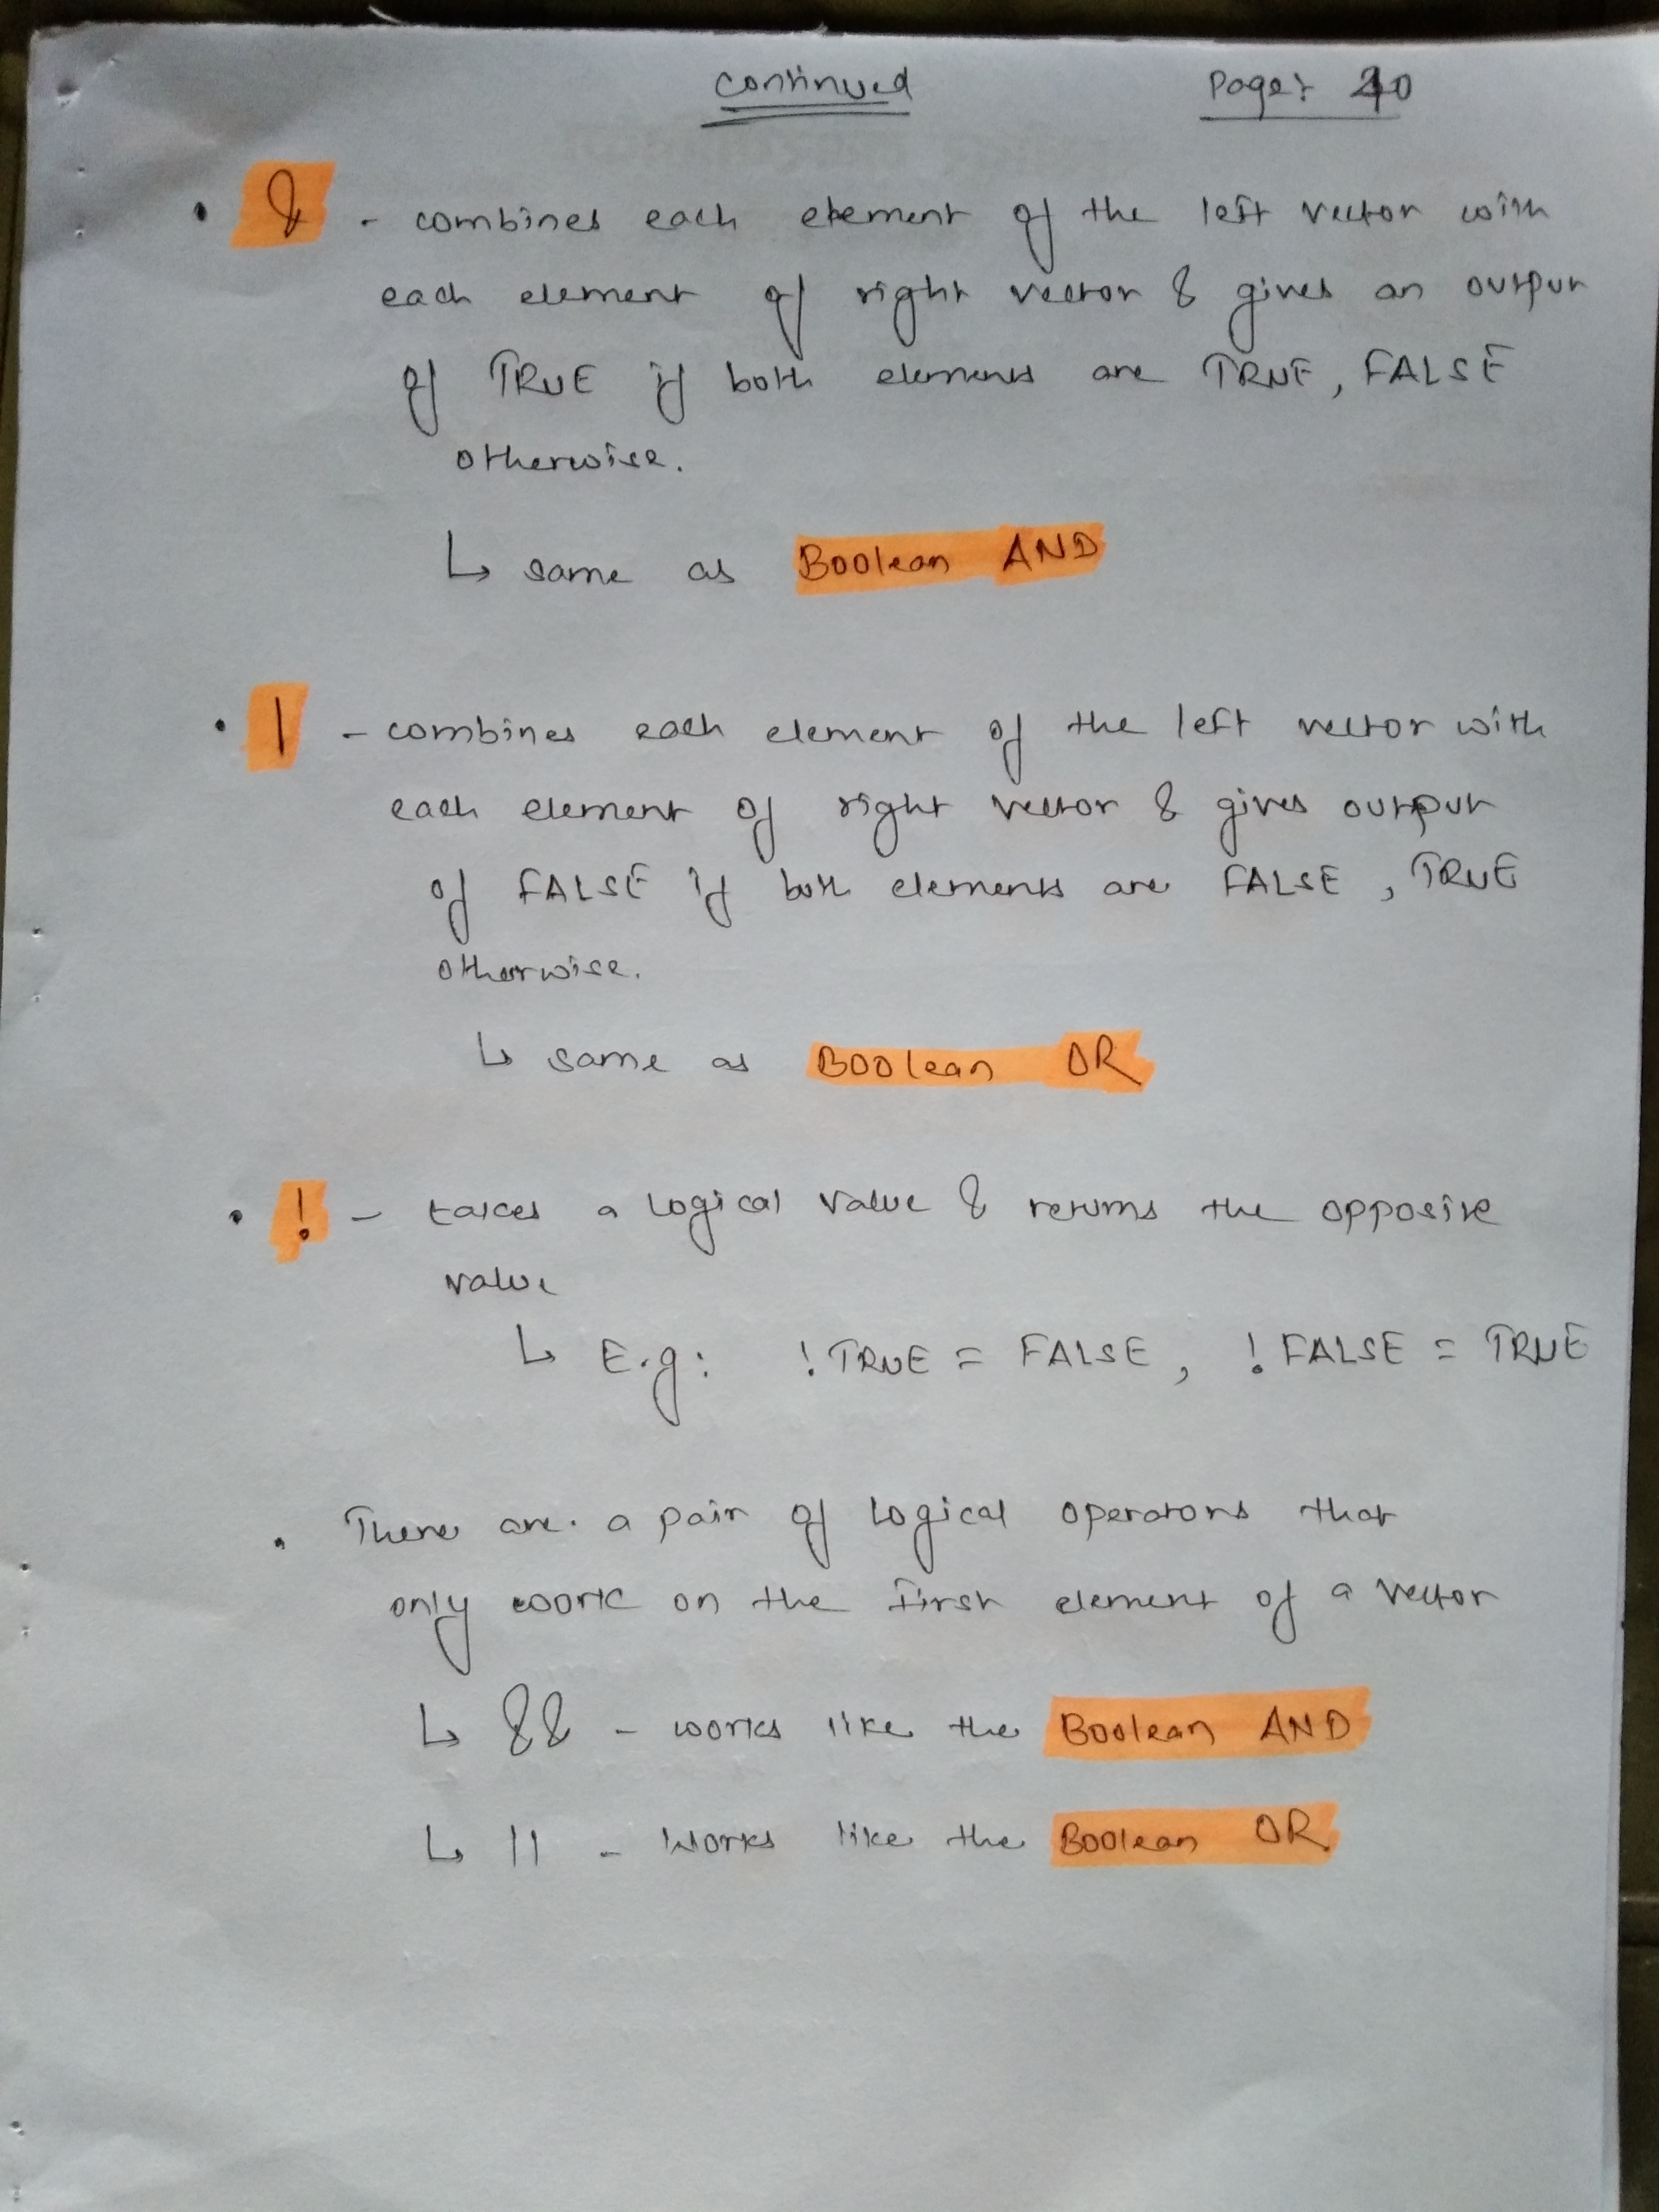 Continued Page: 40
• & - combines each element of the left vector with
each element of right vector & gives an output
of TRUE if both elements are TRUE, FALSE
otherwise.
↳ same as Boolean AND
• | - combines each element of the left vector with
each element of right vector & gives output
of FALSE if both elements are FALSE, TRUE
otherwise.
↳ same as Boolean OR
• ! - takes a logical value & returns the opposite
value
↳ E.g: !TRUE = FALSE, !FALSE = TRUE
• There are a pair of logical operators that
only work on the first element of a vector
↳ && - works like the Boolean AND
↳ || - works like the Boolean OR